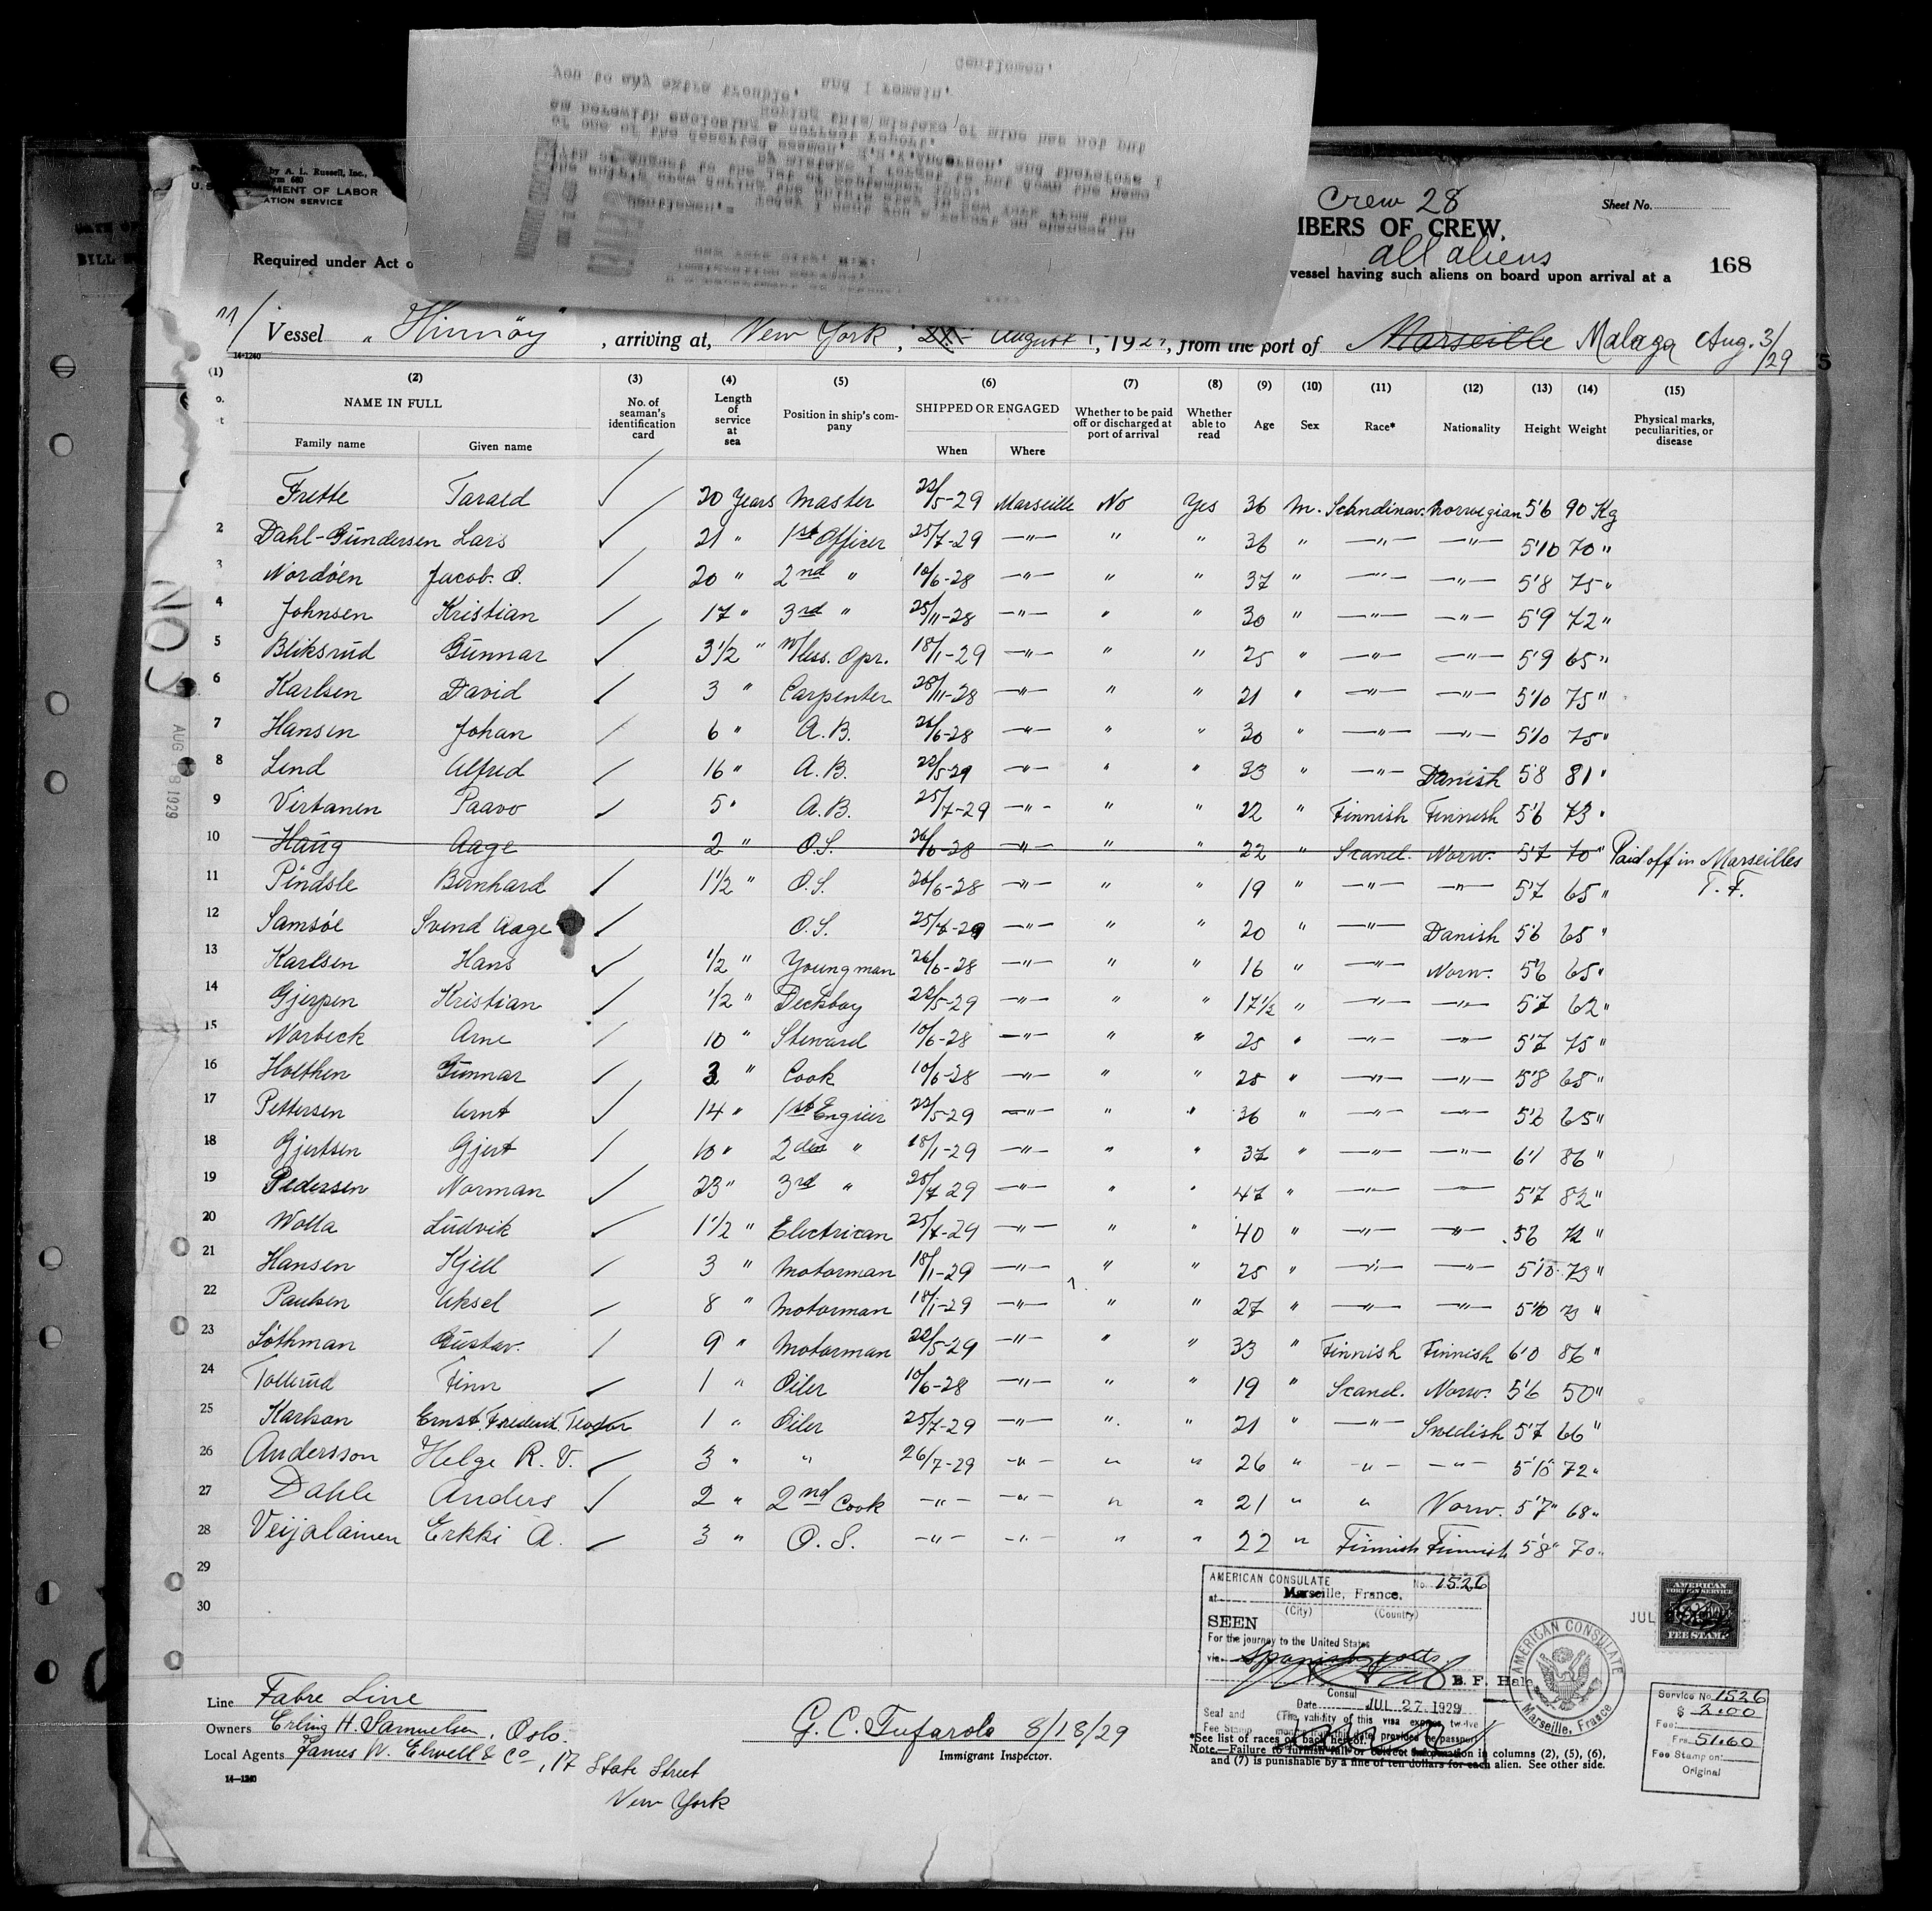 Crew 28
Sheet No.
MBERS OF CREW.
all aliens
by A. L. Russell, Inc.,
MENT OF LABOR
ATION SERVICE
Required under Act
vessel having such aliens on board upon arrival at a
168
Vessel "Hinnöy", arriving at, New York, August, 192, from the port of Marseille Malaga Aug. 3/29
14-1240
(1) (2) (3) (4) (5) (6) (7) (8) (9) (10) (11) (12) (13) (14) (15)
NAME IN FULL No. of seaman's identification card Length of service at sea Position in ship's company SHIPPED OR ENGAGED Whether to be paid off or discharged at port of arrival Whether able to read Age Sex Race* Nationality Height Weight Physical marks, peculiarities, or disease
Family name Given name When Where
Frette Tarald 20 Years Master 22/5-29 Marseille No Yes 36 M. Scandinav. Norwegian 5'6 90 Kg
2 Dahl-Gundersen Lars 21 " 1st Officer 25/7-29 -"- " " 36 " -"- -"- 5'10 70 "
3 Nordöen Jacob. O. 20 " 2nd " 10/6-28 -"- " " 37 " -"- -"- 5'8 75 "
4 Johnsen Kristian 17 " 3rd " 25/11-28 -"- " " 30 " -"- -"- 5'9 72 "
5 Bliksrud Gunnar 3 1/2 " W/less. Opr. 18/1-29 -"- " " 25 " -"- -"- 5'9 65 "
6 Karlsen David 3 " Carpenter 28/11-28 -"- " " 21 " -"- -"- 5'10 75 "
7 Hansen Johan 6 " A.B. 26/6-28 -"- " " 30 " -"- -"- 5'10 75 "
8 Lind Alfred 16 " A.B. 22/5-29 -"- " " 33 " -"- Danish 5'8 81 "
9 Virtanen Paavo 5 " A.B. 25/7-29 -"- " " 22 " Finnish Finnish 5'6 73 "
10 Haug Aage 2 " O.S. 26/6-28 -"- " " 22 " Scand. Norw. 5'7 70 " Paid off in Marseilles
11 Pindsle Bernhard 1 1/2 " O.S. 26/6-28 -"- " " 19 " -"- -"- 5'7 65 " T. F.
12 Samsöe Svend Aage O.S. 25/7-29 -"- " " 20 " -"- Danish 5'6 65 "
13 Karlsen Hans 1/2 " Youngman 26/6-28 -"- " " 16 " -"- Norw. 5'6 65 "
14 Gjerpen Kristian 1/2 " Decksboy 22/5-29 -"- " " 17 1/2 " -"- -"- 5'7 62 "
15 Norbeck Arne 10 " Steward 10/6-28 -"- " " 25 " -"- -"- 5'7 75 "
16 Holthen Gunnar 3 " Cook 10/6-28 -"- " " 25 " -"- -"- 5'8 65 "
17 Pettersen Arnt 14 " 1st Engieer 22/5-29 -"- " " 36 " -"- -"- 5'6 65 "
18 Gjertsen Gjert 10 " 2den " 18/1-29 -"- " " 37 " -"- -"- 6'1 86 "
19 Pedersen Norman 23 " 3rd " 25/7 29 -"- " " 47 " -"- -"- 5'7 82 "
20 Wolla Ludvik 1 1/2 " Electrican 25/7-29 -"- " " 40 " -"- -"- 5'6 72 "
21 Hansen Kjell 3 " Motorman 18/1-29 -"- " " 25 " -"- -"- 5'10 73 "
22 Paulsen Aksel 8 " Motorman 18/1-29 -"- " " 27 " -"- -"- 5'10 73 "
23 Löthman Gustav. 9 " Motorman 22/5-29 -"- " " 33 " Finnish Finnish 6'0 86 "
24 Tollerud Finn 1 " Oiler 10/6-28 -"- " " 19 " Scand. Norw. 5'6 50 "
25 Karlson Ernst. Frederik Teodor 1 " Oiler 25/7-29 -"- " " 21 " -"- Swedish 5'7 66 "
26 Andersson Helge R. V. 3 " " 26/7-29 -"- " " 26 " -"- -"- 5'10 72 "
27 Dahle Anders 2 " 2nd Cook -"- -"- " " 21 " " Norw. 5'7" 68 "
28 Veijalainen Erkki A. 3 " O. S. -"- -"- " " 22 " Finnish Finnish 5'8" 70 "
29
30
NO 5
AUG 18 1929
AMERICAN CONSULATE No. 1526
at Marseille, France.
(City) (Country)
SEEN
For the journey to the United States
via Spanish ports
B. F. Hale
Consul
Date JUL 27 1929
Seal and Fee Stamp
(The validity of this visa expires twelve
AMERICAN CONSULATE
Marseille, France
AMERICAN
FOREIGN SERVICE
FEE STAMP
JUL
Service No. 1526
$ 2.00
Fee:
Frs. 51.60
Fee Stamp on:
Original
Line Fabre Line
Owners Erling H. Samuelsen, Oslo.
Local Agents James W. Elwell & Co, 17 State Street
New York
14-1240
G. C. Tufarolo 8/18/29
Immigrant Inspector.
*See list of races on back hereof.
Note.—Failure to furnish full or correct information in columns (2), (5), (6),
and (7) is punishable by a fine of ten dollars for each alien. See other side.